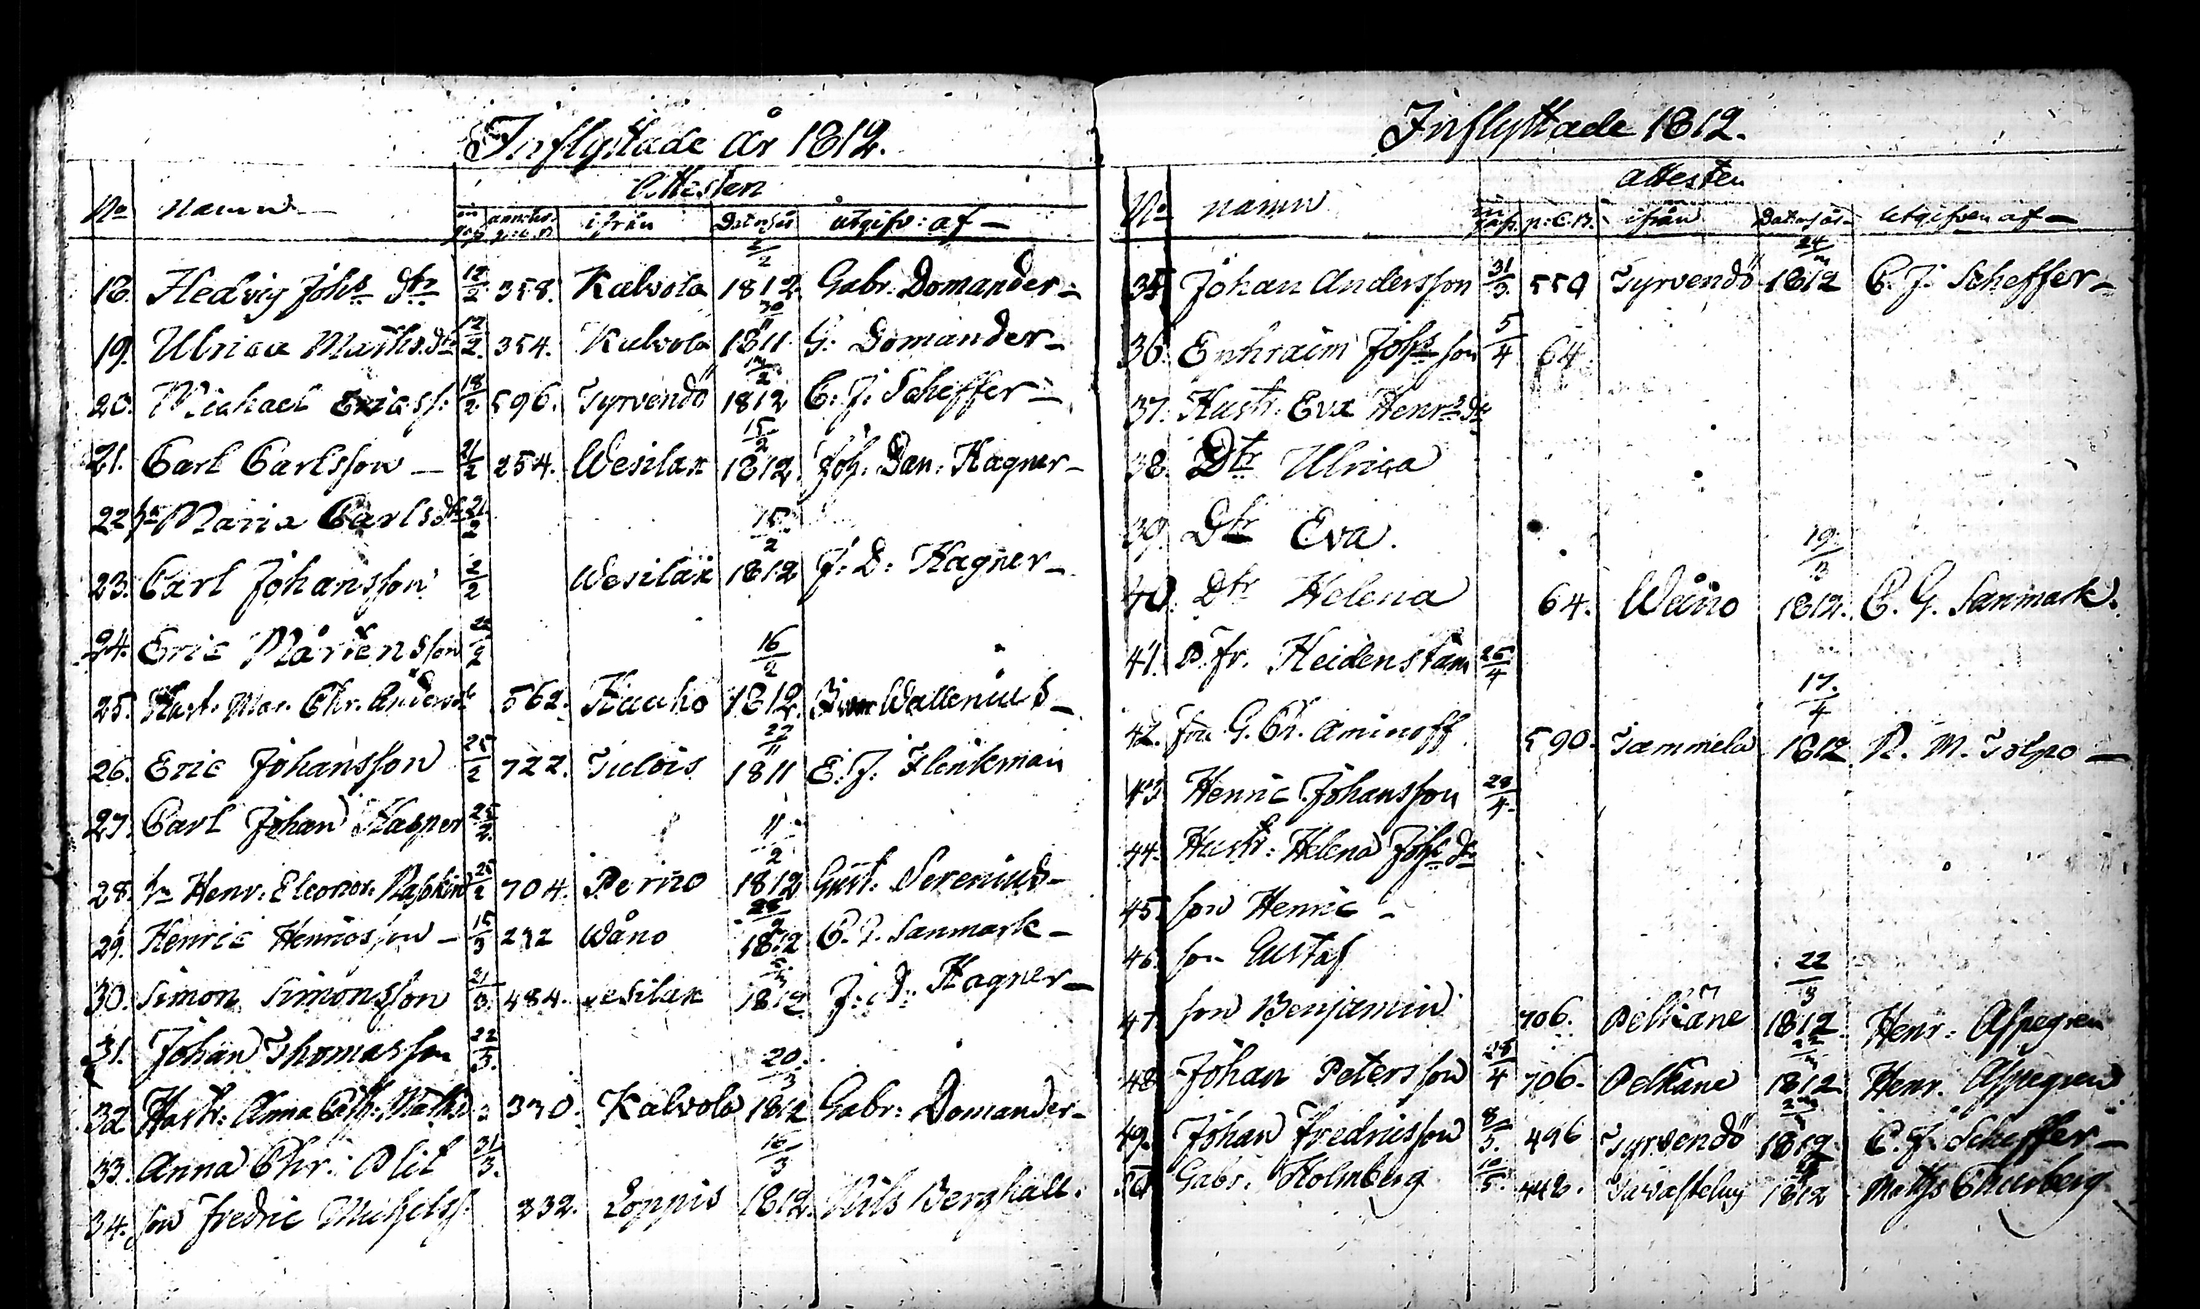 Inflyttade år 1812.
Attesten
No namn ifrån Datum utgifv: af
18. Hedvig Johs dtr 12/2 358. Kalvola 2/2 1812 Gabr. Domander
19. Ulrica Maths. dtr 12/2 354. Kalvola 30/11 1811 G. Domander
20. Michael Ericss. 18/2 596. Tyrvendö 1812 C. J. Scheffer
21. Carl Carlsson 21/2 254. Wesilax 15/2 1812 Joh. Dan. Hagner
22 Maria Carls dtr 21/2
23. Carl Johansson 2/2 Wesilax 15/2 1812 J. D. Hagner
24. Eric Mårtensson
25. Hust. Mar. Chr. Andersd 562. Hauho 16/2 1812 Wallenius
26. Eric Johansson 25/2 722. Tulois 27/11 1811 E. J. Flenkman
27. Carl Johan Kasper 25/2
28. Henr. Eleonor. 25/2 704. Perno 11/2 1812 Gust. Serenius
29. Henric Henricsson 15/3 232 Wåno 1812 Sanmark
30. Simon Simonsson 21/3 484. Wesilax 1812 J. D. Hagner
31. Johan Thomasson 22/3.
32 Hustr. Anna Cath. Maths 330. Kalvola 20/3 1812 Gabr: Domander
33. Anna Chr. Blit 31/3.
34. son Fredric Michelss. 332. Loppis 16/3 1812. Nils Berghäll.
Inflyttade 1812.
attesten
No namn p. C.B. ifrån Datum år utgifven af
35 Johan Andersson 31/3. 550 Tyrvendö 1812 C. J. Scheffer
36. Enhraim Johs son 5/4 64.
37. Hustr. Eva Henrs dtr
38. Dtr Ulrica
39. Dtr Eva.
40. Dtr Helena 64. Wåno 19/3 1812. C. G. Sanmark.
41. B. fr. Heidenstam 26/4
42. fru G. Ch. Aminoff 590. Tammela 17/4 1812 N. M. Tolpo
43. Henric Johansson 28/4.
44. Hustr. Helena Johs dr
45. son Henric
46. son Gustaf
47 son Benjamin 706. Pelkäne 22/3 1812 Henr. Aspegren
48 Johan Petersson 28/4 706. Pelkäne 1812 Henr. Aspegren
49. Johan Fredricsson 8/5. 496 Tyrvendö 1812 C. J. Scheffer
50 Gabr. Holmberg 10/5. 446. Tavastehus 1812 Maths Churberg